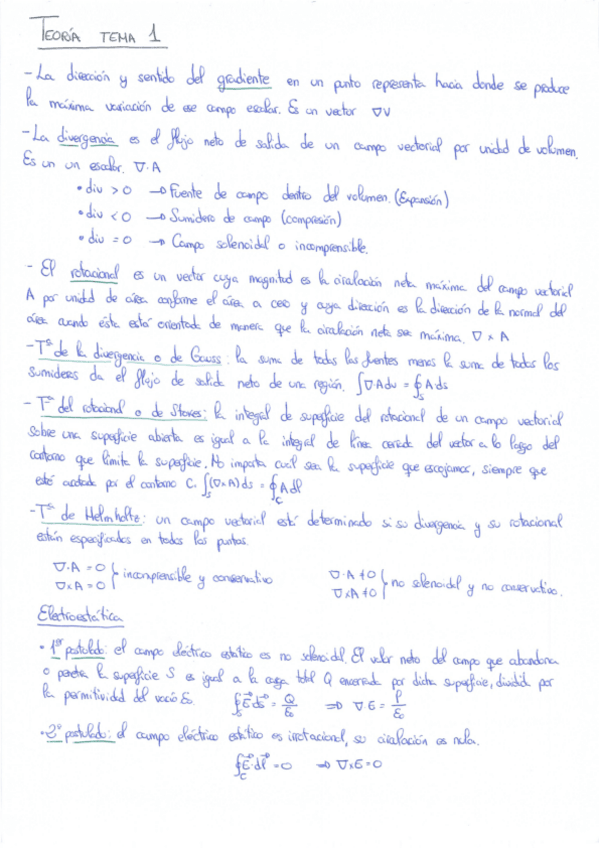 TEORÍA TEMA 1
- La dirección y sentido del gradiente en un punto representa hacia donde se produce
la máxima variación de ese campo escalar. Es un vector ∇V
- La divergencia es el flujo neto de salida de un campo vectorial por unidad de volumen.
Es un un escalar. ∇·A
• div > 0 → Fuente de campo dentro del volumen. (Expansión)
• div < 0 → Sumidero de campo (compresión)
• div = 0 → Campo solenoidal o incomprensible.
- El rotacional es un vector cuya magnitud es la circulación neta máxima del campo vectorial
A por unidad de área conforme el área a cero y cuya dirección es la dirección de la normal del
área cuando ésta está orientada de manera que la circulación neta sea máxima. ∇ x A
- Tª de la divergencia o de Gauss: la suma de todas las fuentes menos la suma de todos los
sumideros da el flujo de salida neto de una región. ∫∇A dv = ∮s A ds
- Tª del rotacional o de Stokes: la integral de superficie del rotacional de un campo vectorial
sobre una superficie abierta es igual a la integral de línea cerrada del vector a lo largo del
contorno que limita la superficie. No importa cual sea la superficie que escojamos, siempre que
esté acotada por el contorno C. ∫s (∇xA) ds = ∮c A dl
- Tª de Helmholtz: un campo vectorial está determinado si su divergencia y su rotacional
están especificados en todos los puntos.
∇·A = 0 ∇xA = 0 } incomprensible y conservativo ∇·A ≠ 0 ∇xA ≠ 0 } no solenoidal y no conservativo.
Electroestática
• 1er postulado: el campo eléctrico estático es no solenoidal. El valor neto del campo que abandona
o penetra la superficie S es igual a la carga total Q encerrada por dicha superficie, dividida por
la permitividad del vacío ε₀. ∮s E⃗ ds⃗ = Q/ε₀ ⇒ ∇E = ρ/ε₀
• 2º postulado: el campo eléctrico estático es irrotacional, su circulación es nula.
∮c E⃗·dl⃗ = 0 ⇒ ∇xE = 0